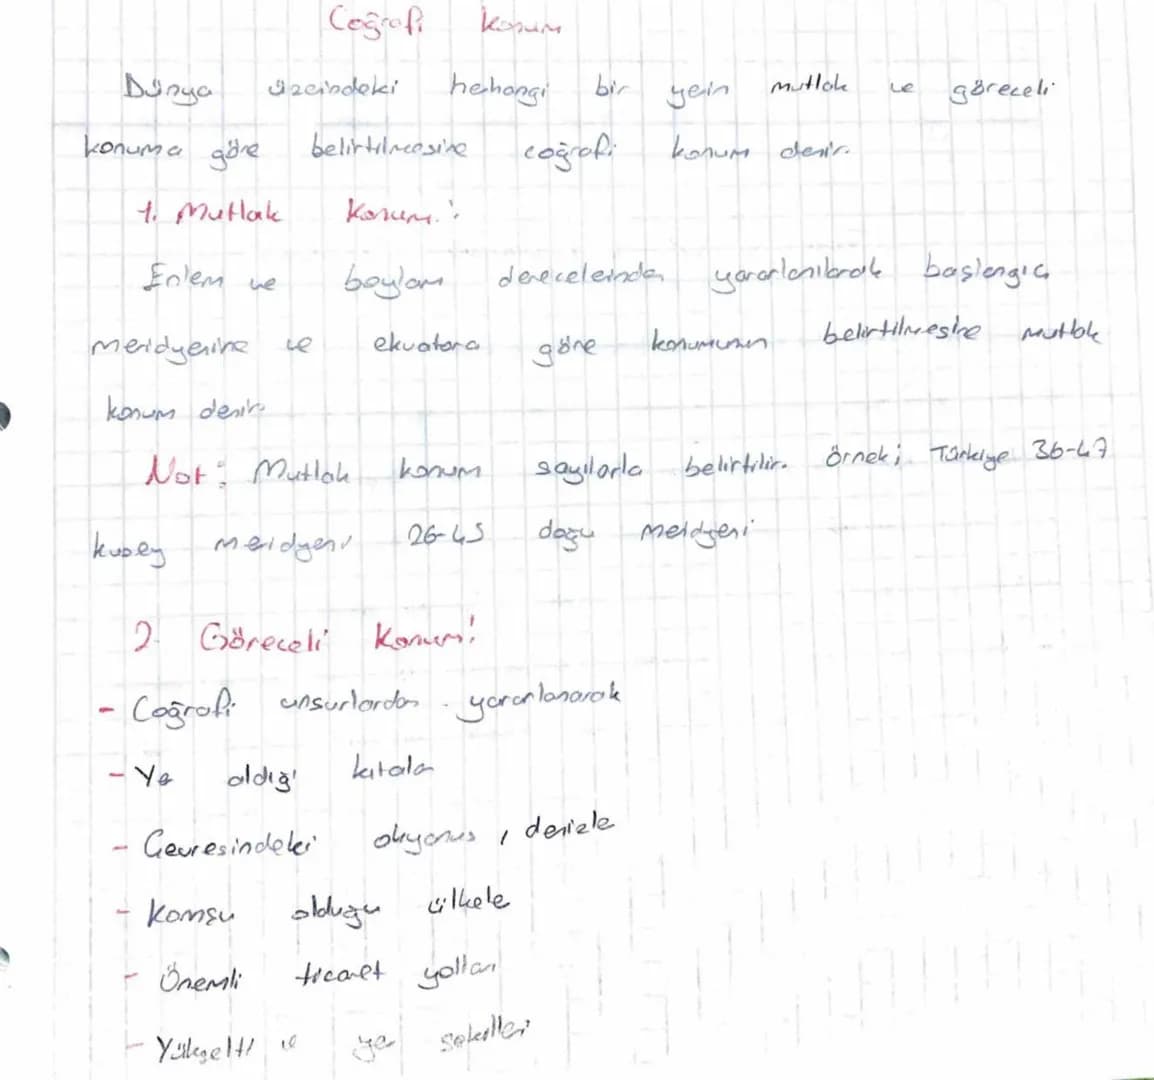 Coğrafi konum
Dünya üzeindeki hehangi bir yein mutlak ve göreceli
konuma göre belirtilmesine coğrafi konum denir.
1. Mutlak Konum:
Enlem ve boylam dereceleinden yararlanılarak başlangıç
meridyenine ve ekvatora göre konumunun belirtilmesine mutlak
konum denir.
Not: Mutlak konum sayılarla belirtilir. örnek; Türkiye 36-42
kuzey meidyeni 26-45 doğu meidyeni
2. Göreceli Konum:
- Coğrafi unsurlardan yararlanarak
- Ye aldığı kıtala
- Çevresindeki okyonus, denizle
- Komşu olduğu ülkele
- Önemli ticaret yolları
- Yükselti ve ye şekilleri